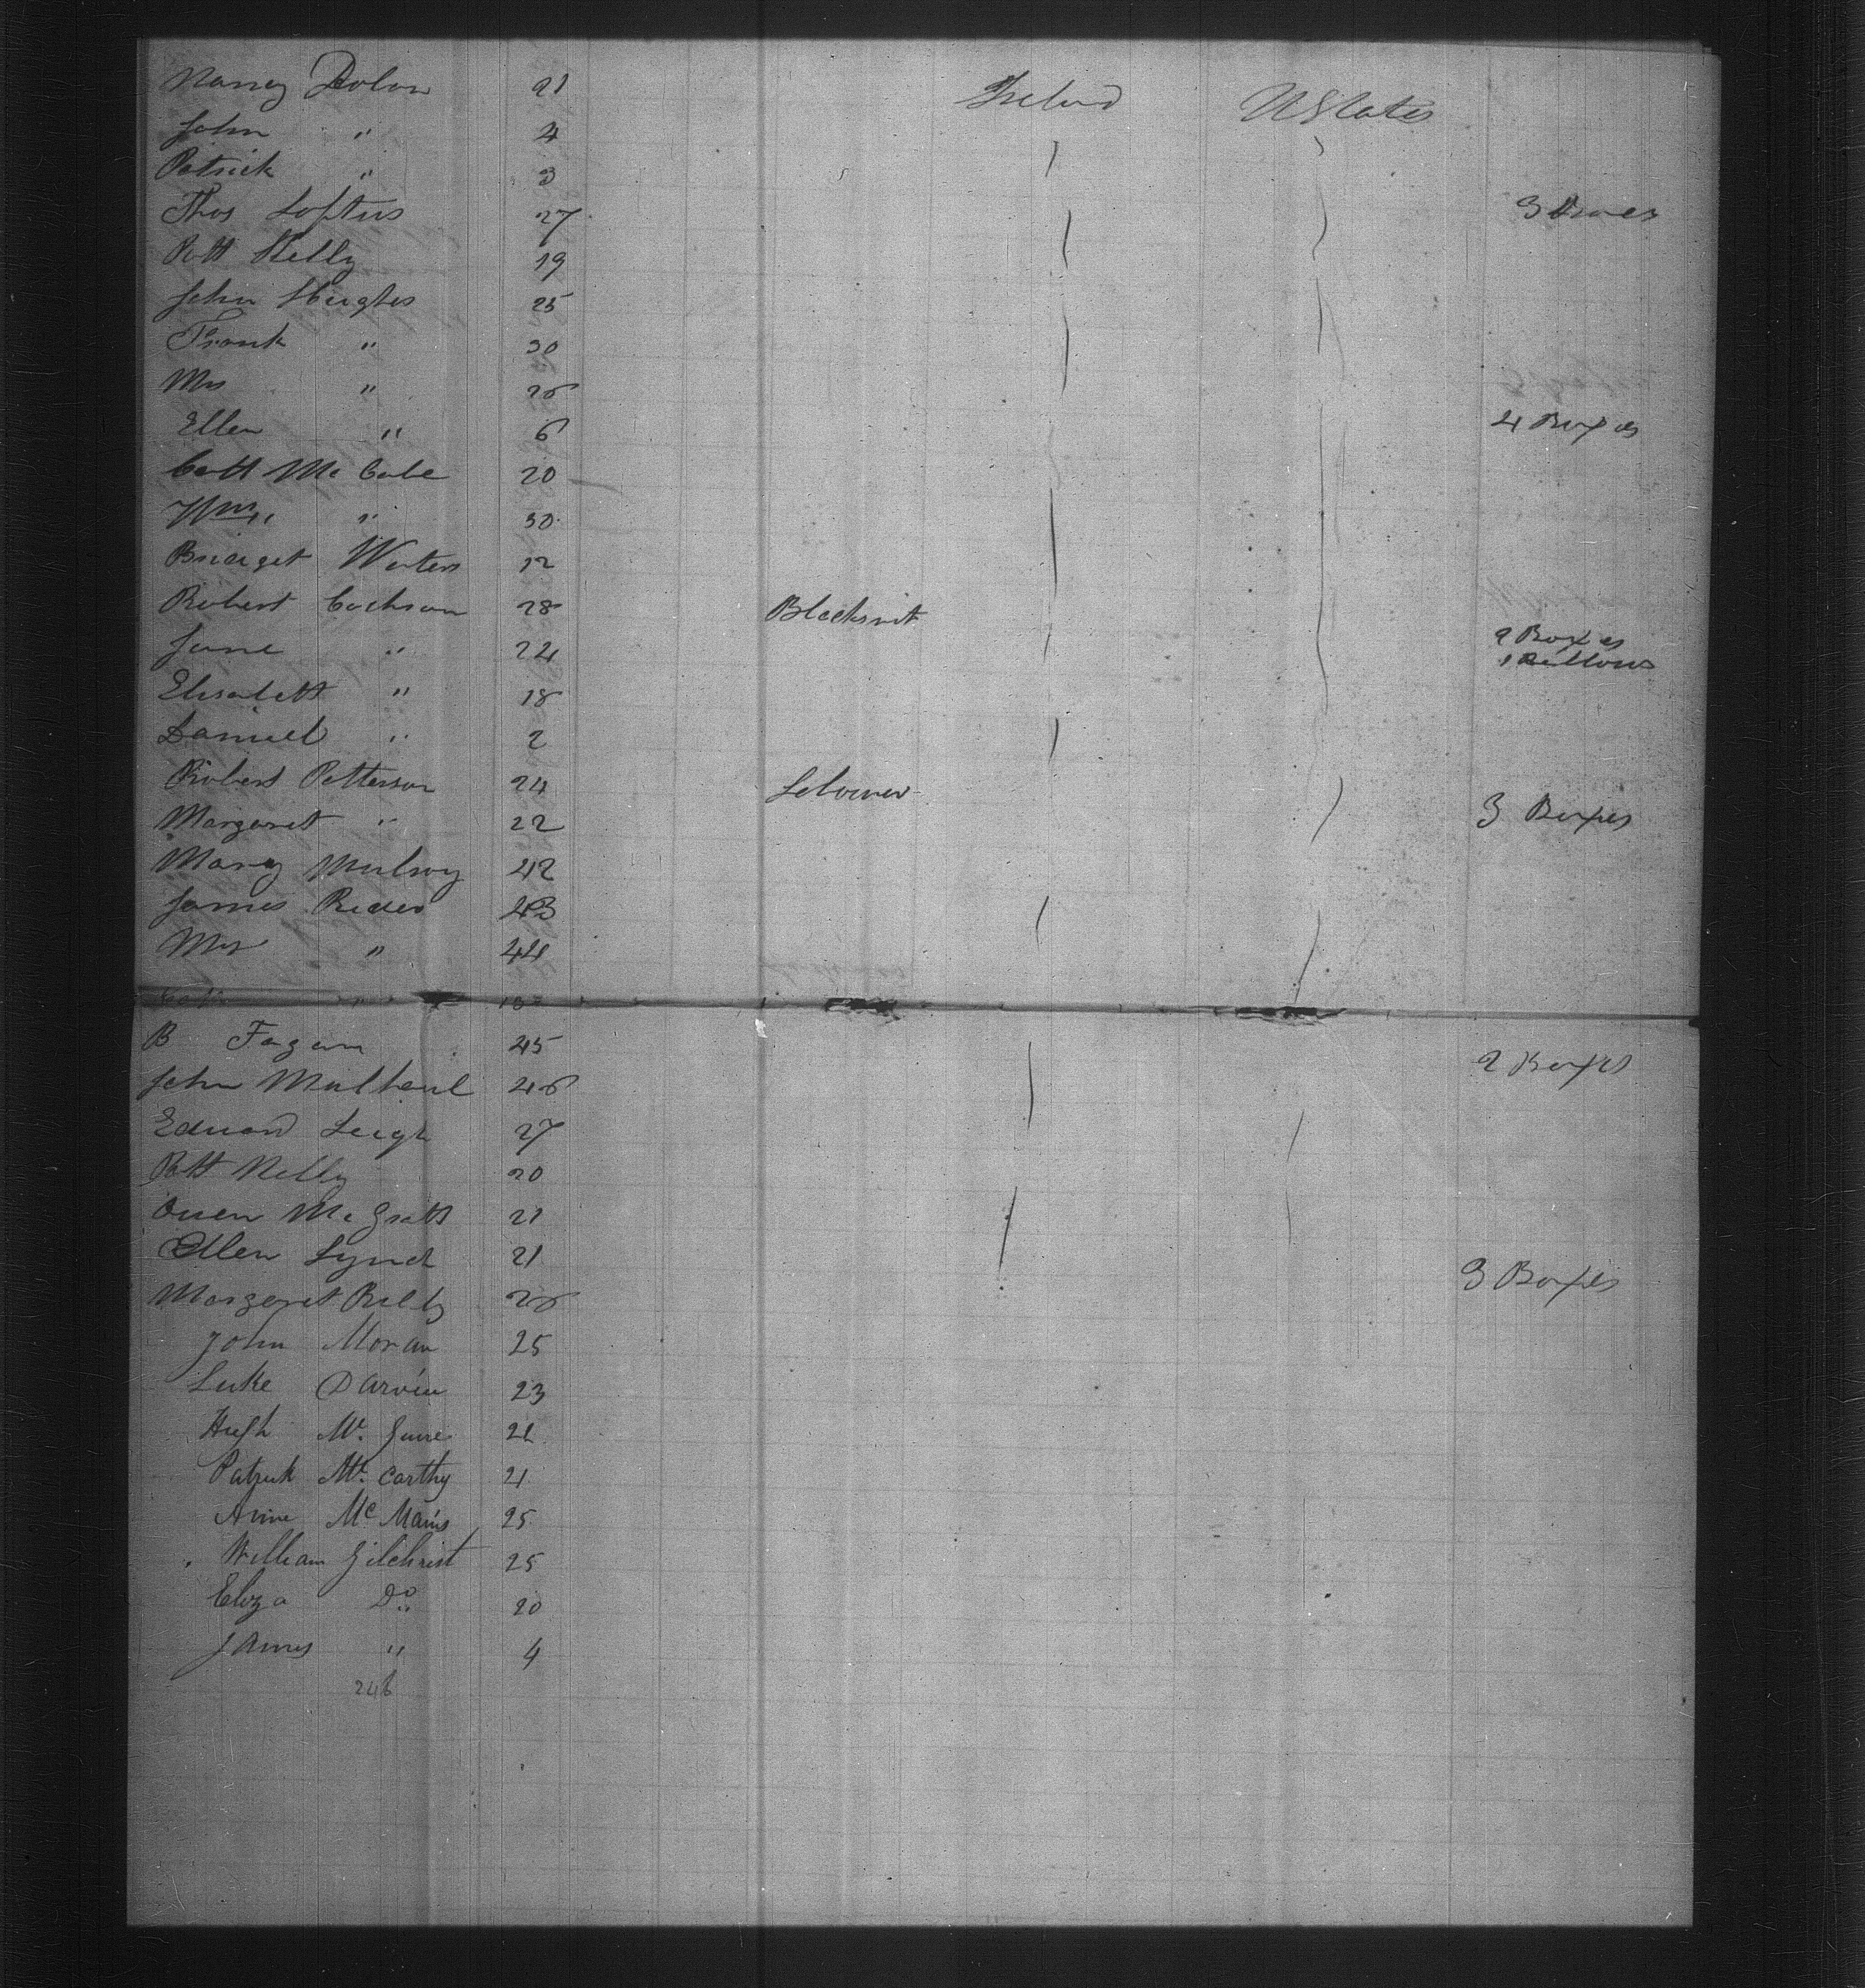 Nancy Dolon 21 Ireland U States
John " 4
Patrick " 3
Thos Loftus 27 3 Boxes
Patt Kelly 19
John Hughes 25
Frank " 30
Mrs " 26
Ellen " 6 4 Boxes
Cath McCabe 20
Wm " 30
Bridget Winters 12
Robert Cochran 28 Blacksmit
Jane " 24 2 Boxes
1 Bellows
Elisabeth " 18
Samuel " 2
Robert Patterson 24 Labourer
Margaret " 22 3 Boxes
Mary Mulvoy 42
James Rider 43
Mrs " 44
Cath "
B Fagan 45 2 Boxes
John Mulhaul 46
Edward Leigh 27
Patt Nelly 20
Owen McGrath 21
Ellen Lynch 21 3 Boxes
Margaret Reilly 26
John Moran 25
Luke Darvin 23
Hugh Mc Guire 21
Patrick Mc Carthy 21
Anne Mc Manis 25
William Gilchrist 25
Eliza Do 20
James " 4
246